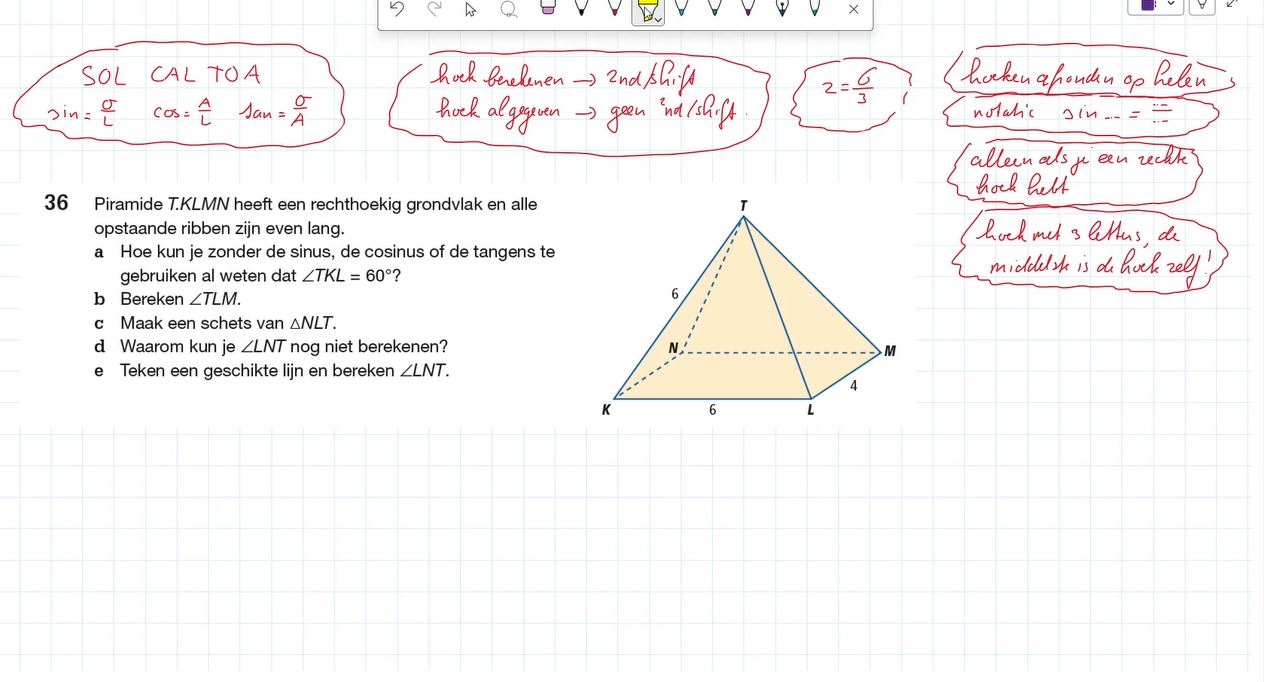 SOL CAL TOA
sin = O/L cos = A/L tan = O/A
hoek berekenen → 2nd/shift
hoek al gegeven → geen 2nd/shift.
2 = 6/3 !
hoeken afronden op helen
notatie sin ... = .../...
alleen als je een rechte
hoek hebt
hoek met 3 letters, de
middelste is de hoek zelf!
36 Piramide T.KLMN heeft een rechthoekig grondvlak en alle
opstaande ribben zijn even lang.
a Hoe kun je zonder de sinus, de cosinus of de tangens te
gebruiken al weten dat ∠TKL = 60°?
b Bereken ∠TLM.
c Maak een schets van △NLT.
d Waarom kun je ∠LNT nog niet berekenen?
e Teken een geschikte lijn en bereken ∠LNT.
T
6
N
M
4
K
6
L